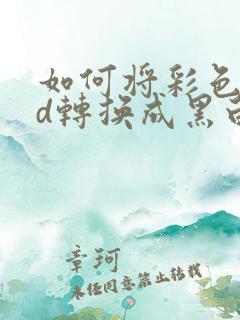 如何将彩色
d轉換成黑白
章珂
未经同意禁止转载